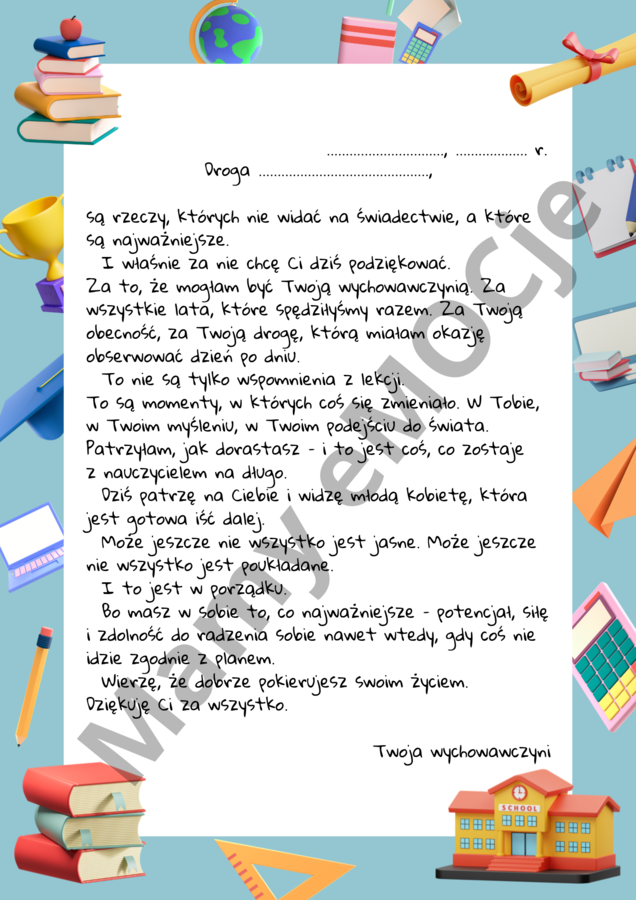 .............................., .................. r.
Droga ............................................,
są rzeczy, których nie widać na świadectwie, a które
są najważniejsze.
I właśnie za nie chcę Ci dziś podziękować.
Za to, że mogłam być Twoją wychowawczynią. Za
wszystkie lata, które spędziłyśmy razem. Za Twoją
obecność, za Twoją drogę, którą miałam okazję
obserwować dzień po dniu.
To nie są tylko wspomnienia z lekcji.
To są momenty, w których coś się zmieniało. W Tobie,
w Twoim myśleniu, w Twoim podejściu do świata.
Patrzyłam, jak dorastasz - i to jest coś, co zostaje
z nauczycielem na długo.
Dziś patrzę na Ciebie i widzę młodą kobietę, która
jest gotowa iść dalej.
Może jeszcze nie wszystko jest jasne. Może jeszcze
nie wszystko jest poukładane.
I to jest w porządku.
Bo masz w sobie to, co najważniejsze - potencjał, siłę
i zdolność do radzenia sobie nawet wtedy, gdy coś nie
idzie zgodnie z planem.
Wierzę, że dobrze pokierujesz swoim życiem.
Dziękuję Ci za wszystko.
Twoja wychowawczyni
Mamy eMOCje
SCHOOL